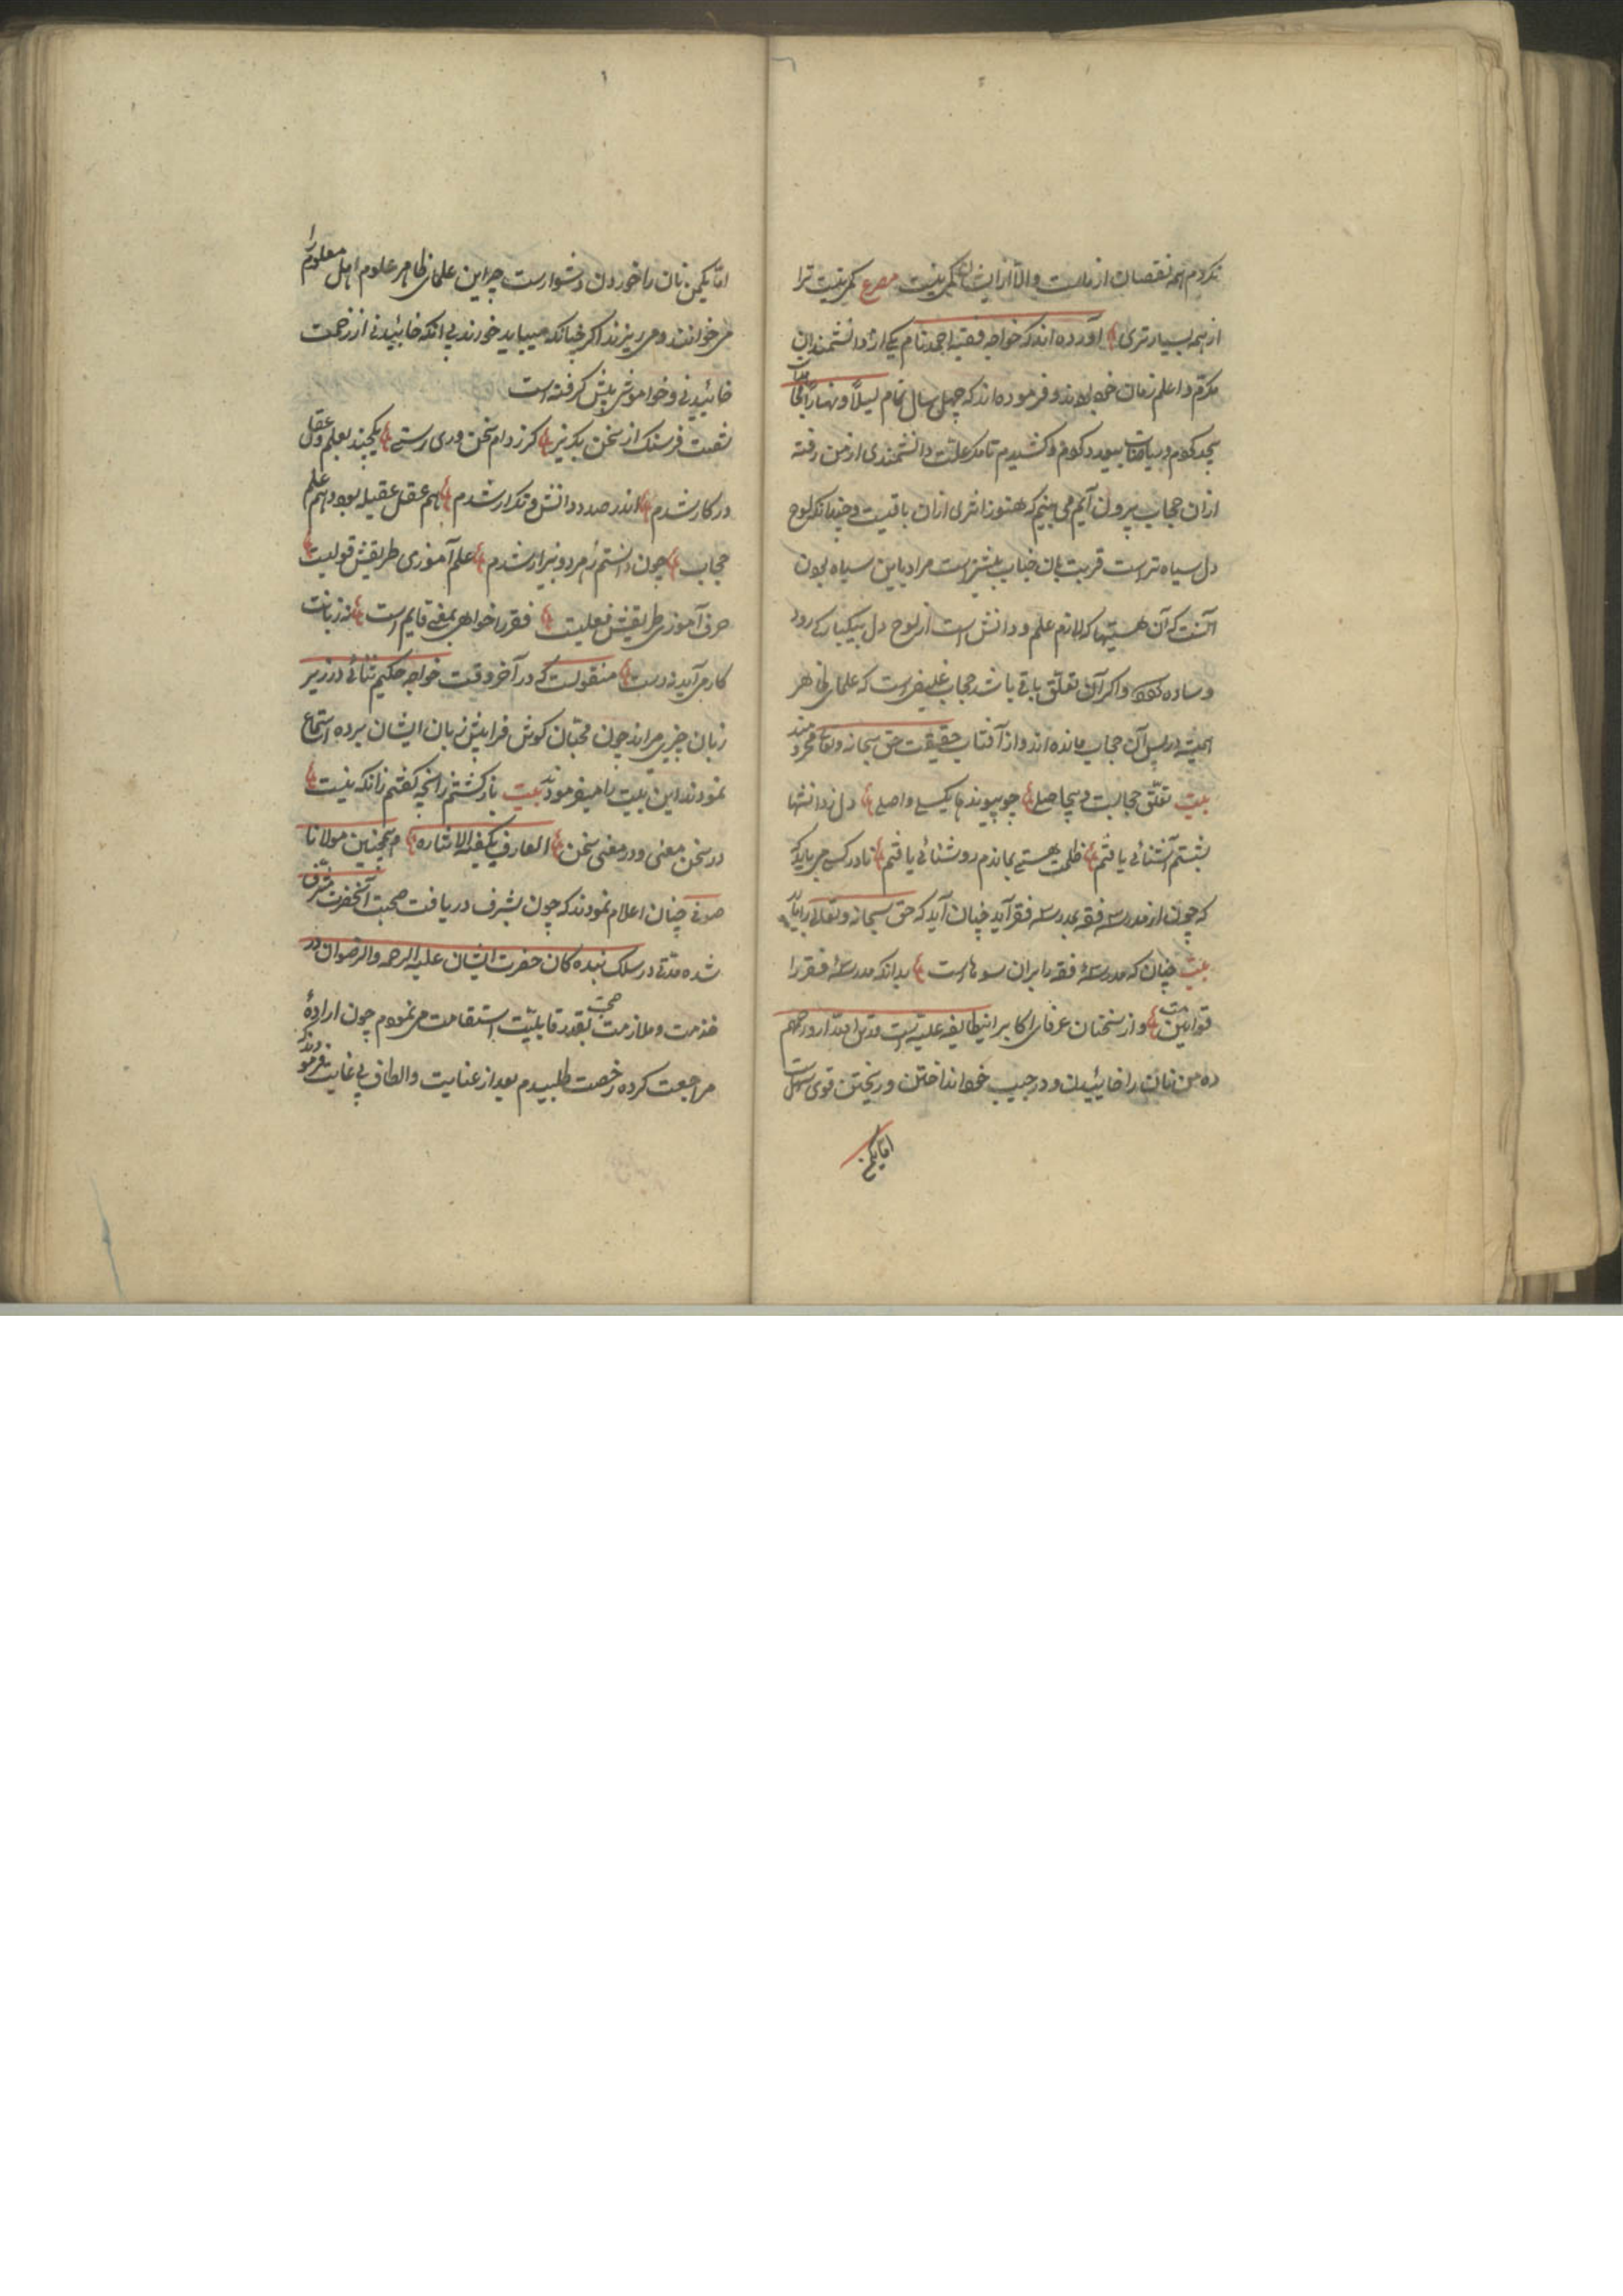 نکردم همه نقصان از ماست والا از ایشان کمی نیست مصرع کمی نیست ترا
از همه بسیارتری آورده اند که خواجه فقیه احمد نام یکی از دانشمندان
مدقق و اعلم زمان خود بودند و فرموده اند که چهل سال تمام لیلاً و نهاراً
جد کردم و ریاضات بی حد کردم و کشیدم تا مگر علت دانشمندی از من رفته
ازان حجاب بیرون آیم می بینم که هنوز اثری ازان باقیست و چندانکه لوح
دل سیاه تر است قربت بان جناب بیشتر است مراد باین سیاه بودن
آنست که آن هستیها که لازم علم و دانش است از لوح دل بیکبارکی رود
و ساده شود و اکر آن تعلق باقی باشد حجاب غلیظی است که علمای ظاهر
همیشه در پس آن حجاب مانده اند و از آفتاب حقیقت حق سبحانه وتعالی محرومند
بیت تعلق حجابست و بیحاصلی چو پیوندها بکسلی واصلی دل ز دانشها
بشستم آشنائی یافتم ظلمت هستی بماندم روشنائی یافتم نادر کسی می باید
که چون از مدرسه فقه بمدرسه فقر آید چنان آید که حق سبحانه وتعالی را باید
بیت چنان که مدرسهٔ فقه را بران سوهاست بدانکه مدرسهٔ فقر را
قوانین است و از سخنان عرفای اکابر اینطایفه علیه است قدس الله ارواحهم
ده من نان را خائیدن و در جیب خود انداختن و ریختن قوی سهل است
اما یکمن
اما یکمن نان را خوردن دشوار است چرا این علمای ظاهر علوم اهل معلوم را
می خوانند و می ریزند اکر چنانکه میباید خورند بی انکه خائیدنی از زحمت
خائیدنی و خواموشی پیش کرفته است
شصت فرسنک از سخن بکریز کز ز دام سخن وری رستی یکچند بعلم و عقل
در کار شدم اندر صدد دانش و تکرار شدم هم عقل عقیله بود و هم علم
حجاب چون دانستم ز هر دو بیزار شدم علم آموزی طریقش قولیست
حرف آموزی طریقش فعلیست فقر خواهی بمعنی قایم است نه زبانت
کار می آید نه دست منقولست که در آخر وقت خواجه حکیم ثنائی در زیر
زبان چیزی میراند چون محبان کوش فرا پیش زبان ایشان برده استماع
نمودند این بیت را میفرمودند بیت بازکشتم زانچه کفتم زانکه نیست
در سخن معنی و در معنی سخن العارف یکفیه الاشاره همچنین مولانا
صوفی چنان اعلام نمودند که چون بشرف دریافت صحبت آنحضرت مشرف
شده مدتی در سلک بنده کان حضرت ایشان علیه الرحمه والرضوان در
خدمت و ملازمت صحبت بقدر قابلیت استقامت می نمودم چون ارادهٔ
مراجعت کرده رخصت طلبیدم بعد از عنایت والطاف بی غایت فرمودند که